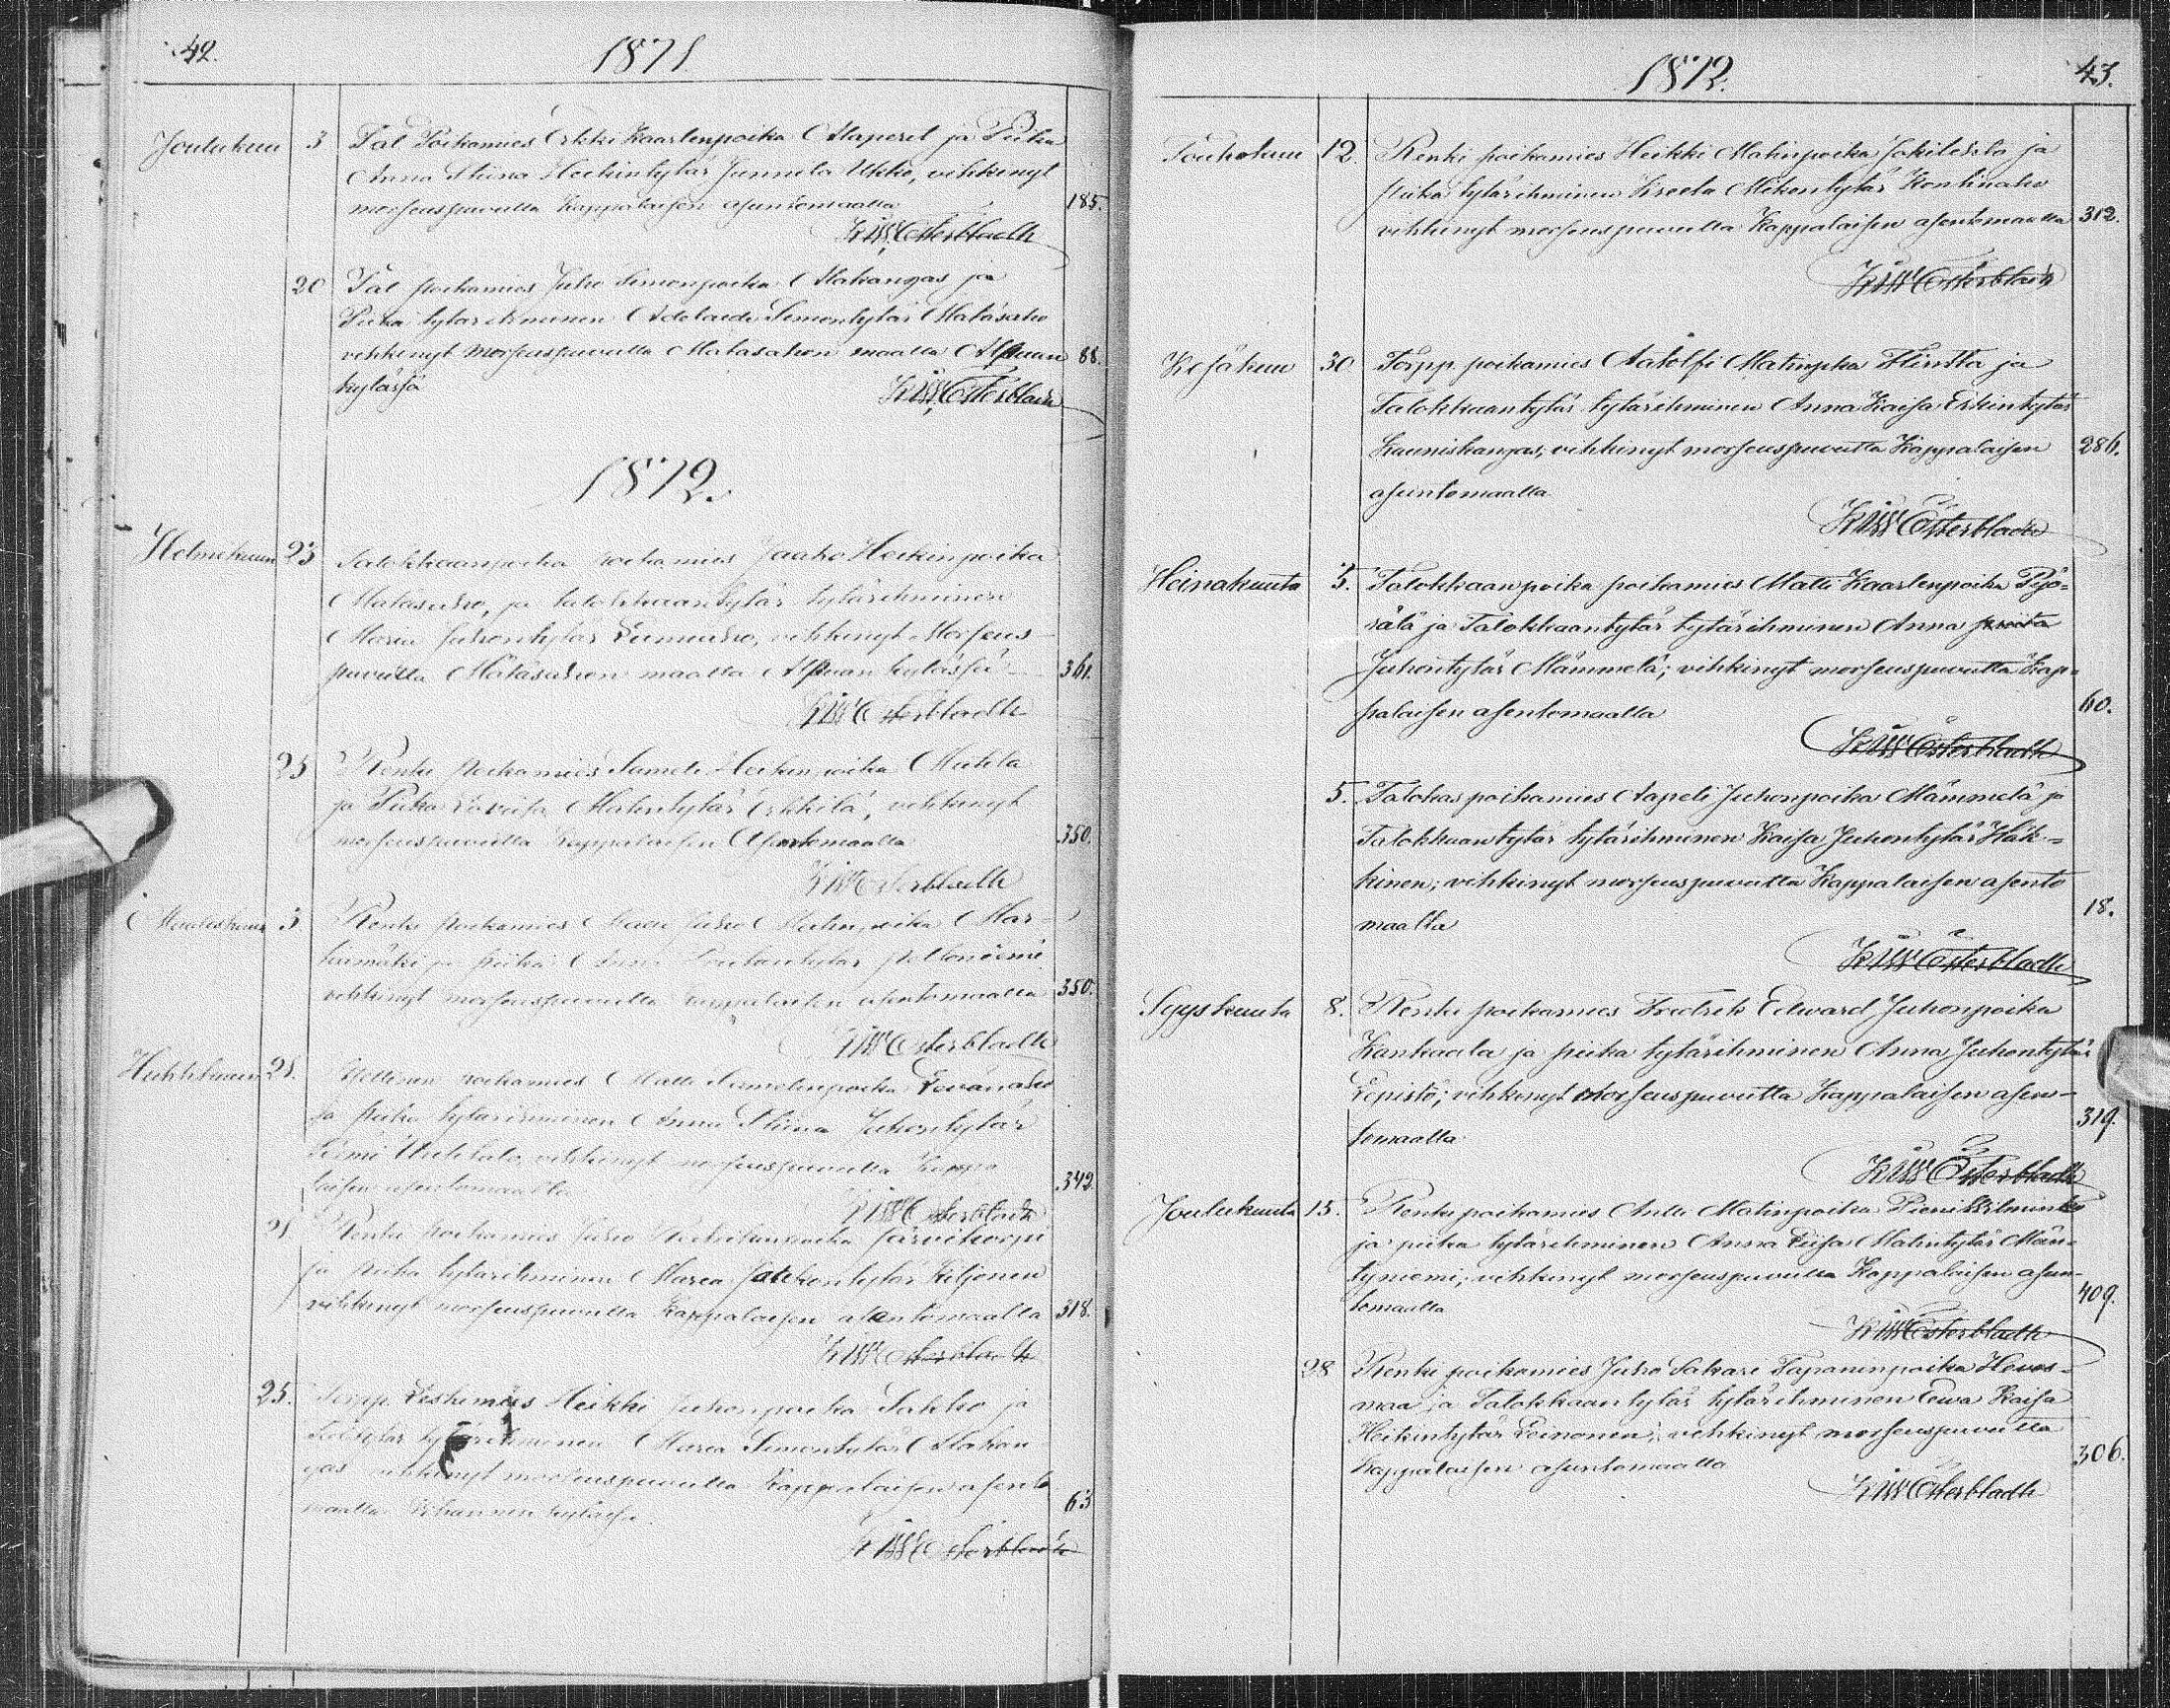 42.
1871.
Joulukuu 3 Tal Poikamies Erkki Kaarlenpoika Alaperet ja Piika
Anna Stiina Heikintytär Junnila Ukko, vihkinyt
morseuspuvutta Kappalaisen asuntomaalla 185.
Österbladh
20 Tal poikamies Juho Simonpoika Alakangas ja
Piika tytärihminen Adelaide Simontytär Matasaho
vihkinyt morseuspuvutta Matasahon maalla Alpuan 88.
kylässä
Österbladh
1872.
Helmikuun 23 Talokkaanpoika poikamies Jaako Heikinpoika
Matasaho, ja talokkaantytär tytärihminen
Maria Juhontytär Lumiaho, vihkinyt Morseus
puvutta Matasahon maalla Alpuan kylässä 361.
Österbladh
25 Renki poikamies Sameli Heikinpoika Muhla
ja Piika Loviisa Matintytär Erkkilä, vihkinyt
morseuspuvutta Kappalaisen Asuntomaalla 350.
Österbladh
Maaliskuu 3 Renki poikamies Juho Matinpoika Mar-
kimäki ja piika Anna
vihkinyt morseuspuvutta kappalaisen asuntomaalla 350.
Österbladh
Huhtikuun 21. poikamies Matti Samelinpoika Levänaho
ja piika tytärihminen Anna Stiina Juhontytär
vihkinyt morseuspuvutta Kappa
laisen asuntomaalla 342.
Österbladh
21 Renki poikamies Juho Järvikorpi
ja piika tytärihminen Maria Kiljonen
vihkinyt morseuspuvutta Kappalaisen asuntomaalla 318.
Österbladh
25. Torpp. Leskimies Heikki Juhonpoika Sakko ja
Tal tytär tytärihminen Maria Simontytär Alakan
gas vihkinyt morseuspuvutta Kappalaisen asunto
maalla kylässä 63
Österbladh
1872. 43.
Toukokuu 12. Renki poikamies Heikki Matinpoika Jokilehto ja
piika tytärihminen Kreeta Mikontytär Kontinaho
vihkinyt morseuspuvutta Kappalaisen asuntomaalla 312.
Österbladh
Kesäkuu 30 Torpp. poikamies Aatolfi Matinpka Hintta ja
Talokkaantytär tytärihminen Anna Kaisa Erkintytär
Kauniskangas, vihkinyt morseuspuvutta Kappalaisen 286.
asuntomaalla
Österbladh
Heinäkuuta 5. Talokkaanpoika poikamies Matti Kaarlenpoika Pyö-
rälä ja Talokkaantytär tytärihminen Anna
Juhontytär Mämmelä; vihkinyt morseuspuvutta Kap-
palaisen asentomaalla 60.
Österbladh
5. Talokas poikamies Aapeli Juhonpoika Mämmelä ja
Talokkaantytär tytärihminen Kaisa Juhontytär Häk-
kinen; vihkinyt morseuspuvutta Kappalaisen asento
maalla 18.
Österbladh
Syyskuuta 8. Renki poikamies Fredrik Edward Juhonpoika
Kankaala ja piika tytärihminen Anna Juhontytär
Lepistö; vihkinyt Morseuspuvutta Kappalaisen asen-
tomaalla 319.
Österbladh
Joulukuuta 15. Renki poikamies Antti Matinpoika Pieni Kiiminki
ja piika tytärihminen Anna Liisa Matintytär Män-
tyniemi; vihkinyt morseuspuvutta Kappalaisen asun-
tomaalla 409.
Österbladh
28 Renki poikamies Juho Sakari Tapaninpoika Hevos-
maa ja Talokkaantytär tytärihminen Eewa Kaisa
Heikintytär Leinonen; vihkinyt morseuspuvutta
Kappalaisen asuntomaalla 306.
Österbladh